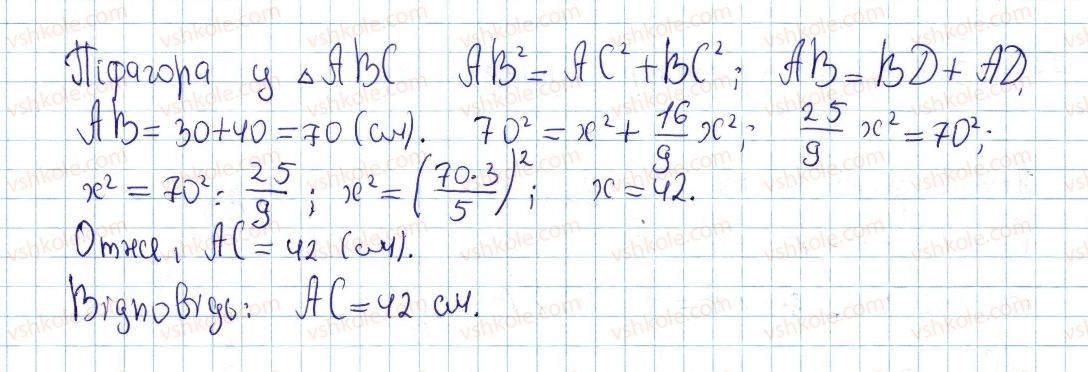 Піфагора у △ABC AB² = AC² + BC²; AB = BD + AD,
AB = 30 + 40 = 70 (см). 70² = x² + 16/9 x²; 25/9 x² = 70²;
x² = 70² : 25/9; x² = (70·3/5)²; x = 42.
Отже, AC = 42 (см).
Відповідь: AC = 42 см.